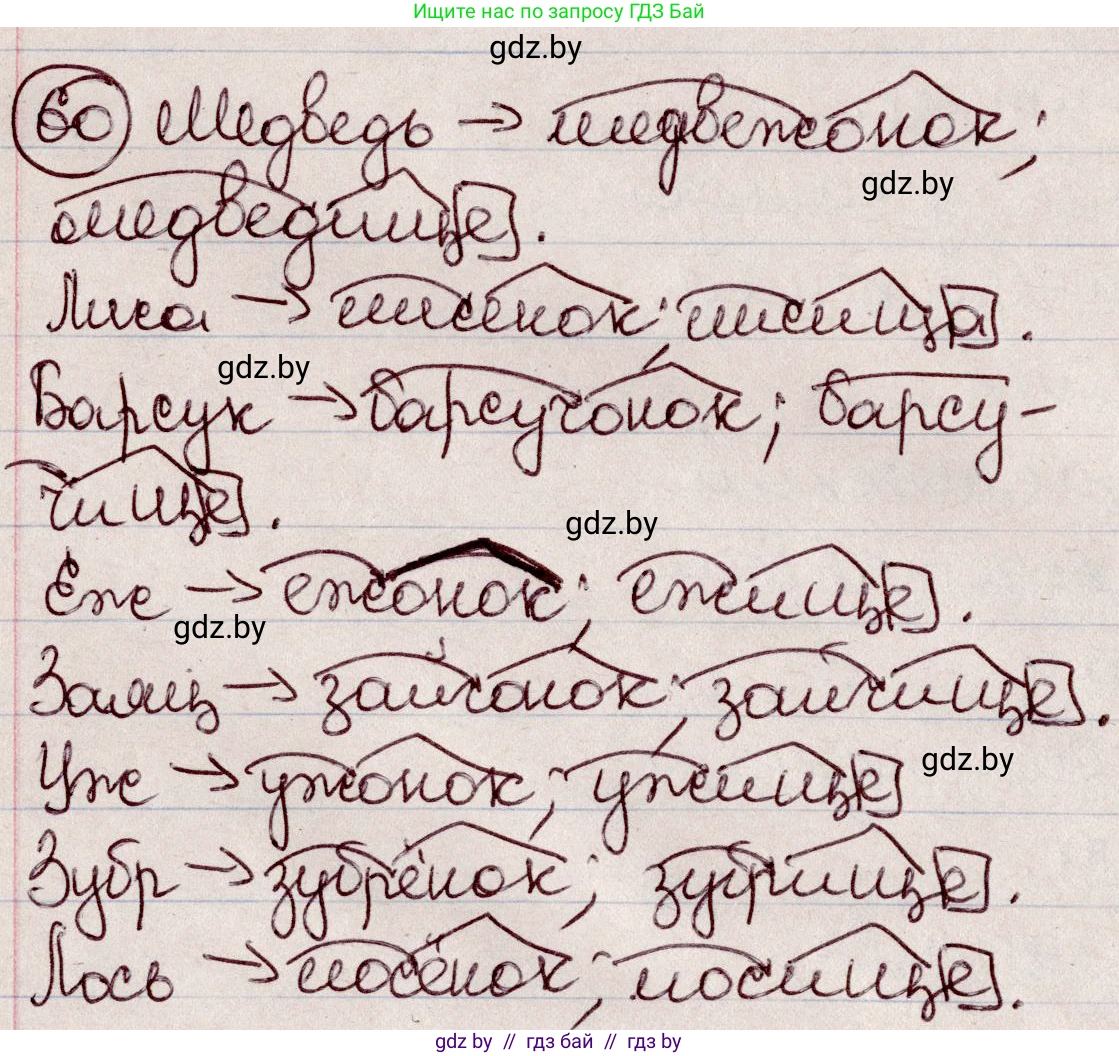 Ищите нас по запросу ГДЗ Бай
gdz.by
60 Медведь → медвежонок;
gdz.by
медведище.
Лиса → лисёнок; лисища.
gdz.by
Барсук → барсучонок; барсу-
чище.
gdz.by
Ёж → ежонок; ежище.
gdz.by
Заяц → зайчонок; зайчище.
Уж → ужонок; ужище
gdz.by
Зубр → зубрёнок; зубрище.
Лось → лосёнок; лосище.
gdz.by // гдз бай // гдз by